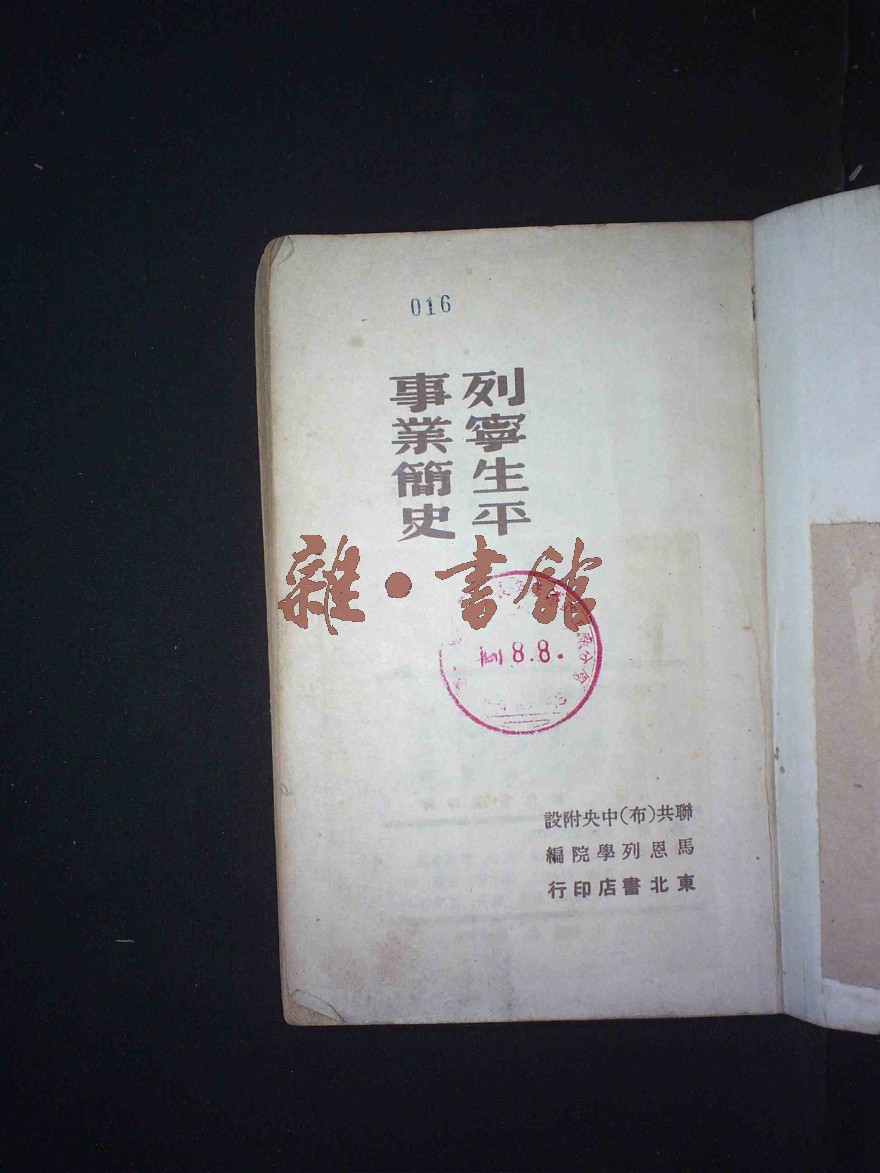 016
列寧生平
事業簡史
雜·書館
8.8.
聯共(布)中央附設
馬恩列學院編
東北書店印行